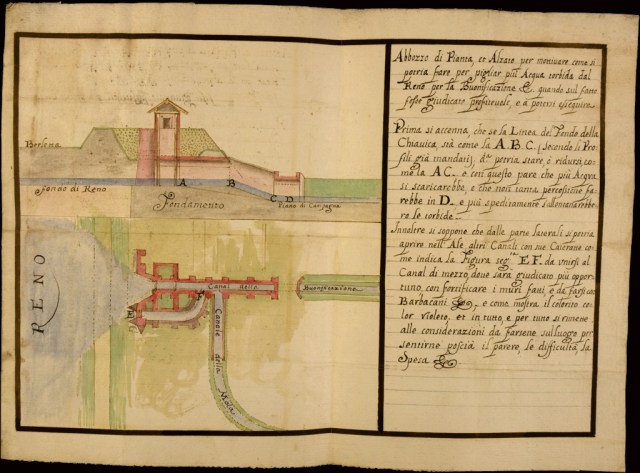 Bersena
Fondo di Reno
A
B
C
D
Fondamento
Piano di Campagna
RENO
Canal della
Buonificazione
E
F
Canale della Mola
Abbozzo di Pianta, et Alzato per motiuare come si
potria fare per pigliar più Acqua torbida dal
Reno per la Buonificazione &. quando sul fatto
fosse giudicato profitteuole, e a potersi esequire.
Prima si accenna, che se la Linea del Fondo della
Chiauica, sià come la A.B.C. (Secondo li Pro-
fili già mandati) dª. potria stare, ò ridursi, co-
me la A C. e con questo pare che più Acqua
si scaricarebbe, e che non tanta percossione fa-
rebbe in D. e più speditamente s'allontanarebbe-
ro le torbide.
Inoltre si soppone che dalle parti laterali si potria
aprire nell'Ale altri Canali con sue Caterane co-
me indica la Figura segª. E F. da unirsi al
Canal di mezzo doue sarà giudicato più oppor-
tuno, con fortificare i muri fatti, e da farsi con
Barbacani &, e come mostra il colorito co-
lor violeto, et in tutto, e per tutto si rimette
alle considerazioni da farsene sulluogo per
sentirne poscia il parere, le difficultà, la
Spesa &.